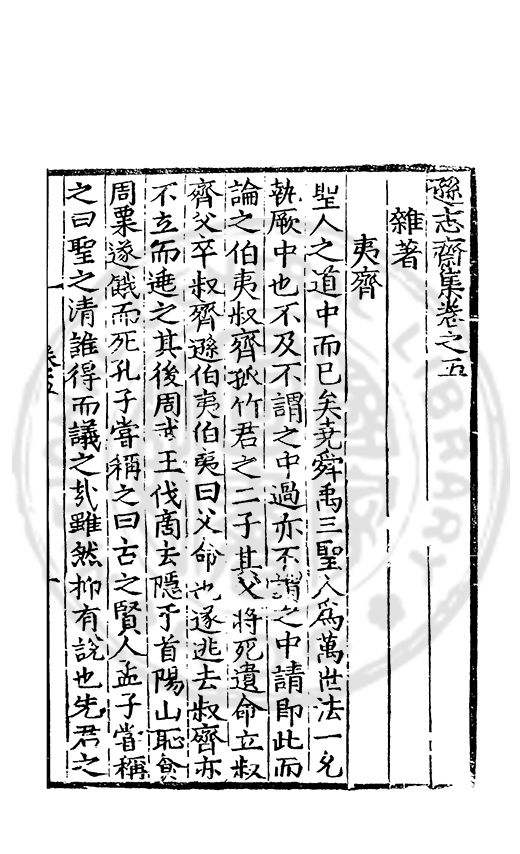 遜志齋集卷之五
雜著
夷齊
聖人之道中而已矣堯舜禹三聖人為萬世法一允
執厥中也不及不謂之中過亦不謂之中請即此而
論之伯夷叔齊孤竹君之二子其父將死遺命立叔
齊父卒叔齊遜伯夷伯夷曰父命也遂逃去叔齊亦
不立而逃之其後周武王伐商去隱于首陽山恥食
周粟遂餓而死孔子嘗稱之曰古之賢人孟子嘗稱
之曰聖之清誰得而議之哉雖然抑有說也先君之
卷五
一